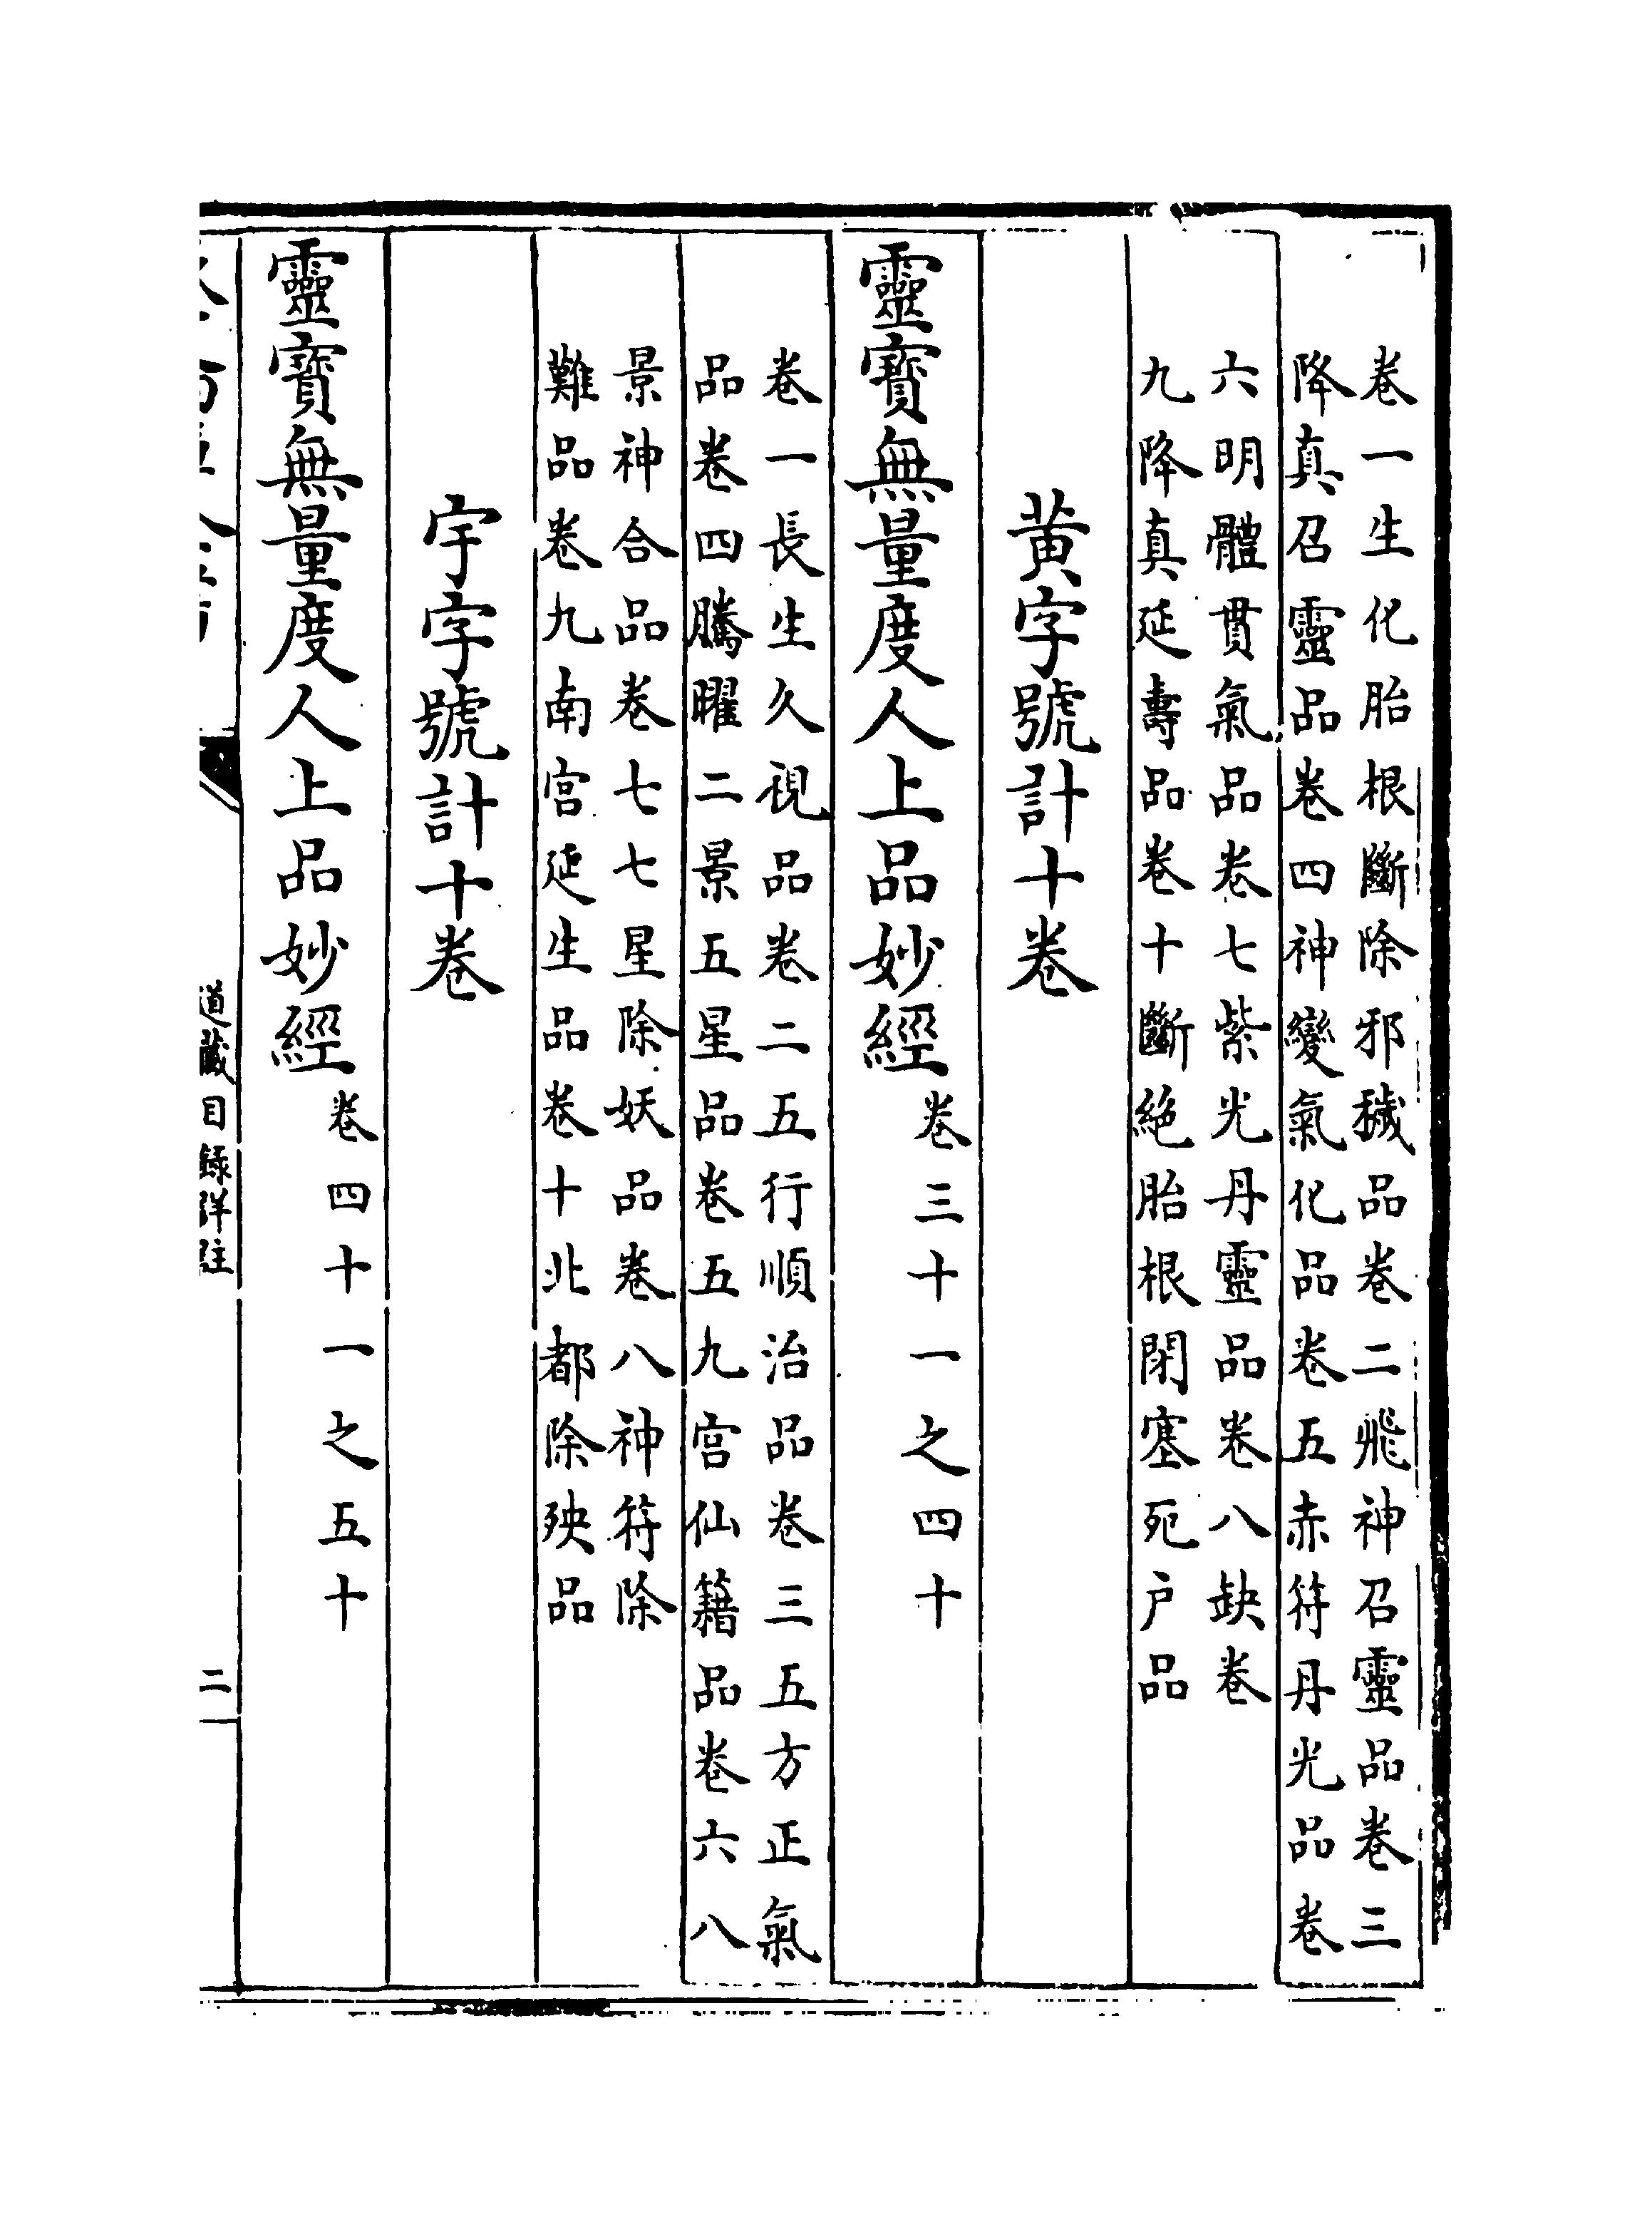 卷一生化胎根斷除邪穢品卷二飛神召靈品卷三
降真召靈品卷四神變氣化品卷五赤符丹光品卷
六明體貫氣品卷七紫光丹靈品卷八缺卷
九降真延壽品卷十斷絶胎根閉塞死户品
黄字號計十卷
靈寶無量度人上品妙經卷三十一之四十
卷一長生久視品卷二五行順治品卷三五方正氣
品卷四騰曜二景五星品卷五九宫仙籍品卷六八
景神合品卷七七星除妖品卷八神符除
難品卷九南宫延生品卷十北都除殃品
宇字號計十卷
靈寶無量度人上品妙經卷四十一之五十
道藏目錄詳註
二